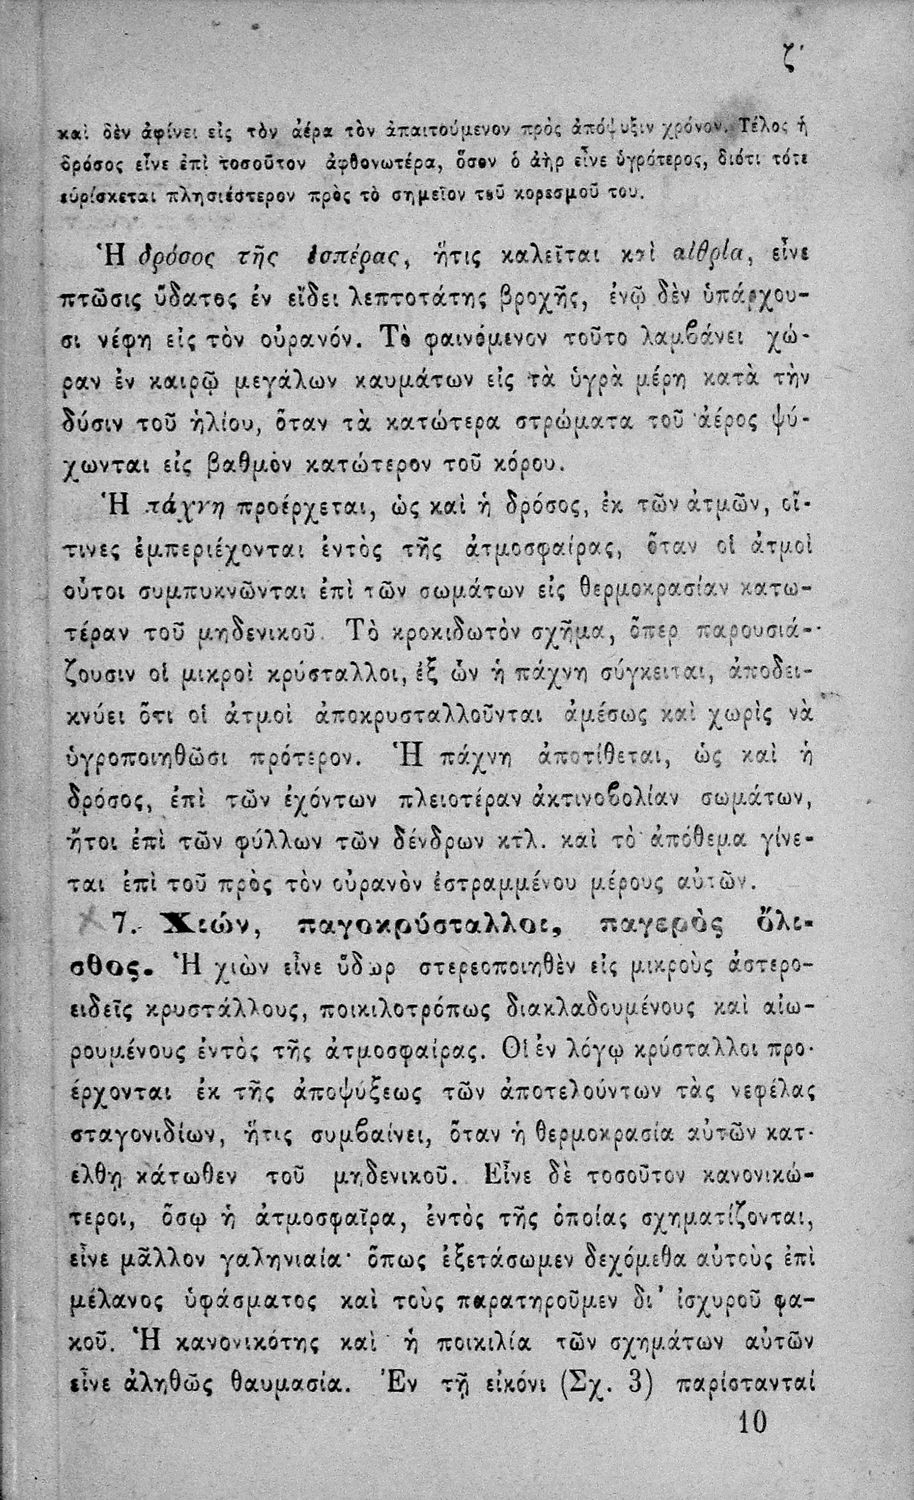 ζ′
καὶ δὲν ἀφίνει εἰς τὸν ἀέρα τὸν ἀπαιτούμενον πρὸς ἀπόψυξιν χρόνον. Τέλος ἡ
δρόσος εἶνε ἐπὶ τοσοῦτον ἀφθονωτέρα, ὅσον ὁ ἀὴρ εἶνε ὑγρότερος, διότι τότε
εὑρίσκεται πλησιέστερον πρὸς τὸ σημεῖον τοῦ κορεσμοῦ του.
Ἡ δρόσος τῆς ἑσπέρας, ἥτις καλεῖται καὶ αἰθρία, εἶνε
πτῶσις ὕδατος ἐν εἴδει λεπτοτάτης βροχῆς, ἐνῷ δὲν ὑπάρχου-
σι νέφη εἰς τὸν οὐρανόν. Τὸ φαινόμενον τοῦτο λαμβάνει χώ-
ραν ἐν καιρῷ μεγάλων καυμάτων εἰς τὰ ὑγρὰ μέρη κατὰ τὴν
δύσιν τοῦ ἡλίου, ὅταν τὰ κατώτερα στρώματα τοῦ ἀέρος ψύ-
χωνται εἰς βαθμὸν κατώτερον τοῦ κόρου.
Ἡ πάχνη προέρχεται, ὡς καὶ ἡ δρόσος, ἐκ τῶν ἀτμῶν, οἵ-
τινες ἐμπεριέχονται ἐντὸς τῆς ἀτμοσφαίρας, ὅταν οἱ ἀτμοὶ
οὗτοι συμπυκνῶνται ἐπὶ τῶν σωμάτων εἰς θερμοκρασίαν κατω-
τέραν τοῦ μηδενικοῦ. Τὸ κροκιδωτὸν σχῆμα, ὅπερ παρουσιά-
ζουσιν οἱ μικροὶ κρύσταλλοι, ἐξ ὧν ἡ πάχνη σύγκειται, ἀποδει-
κνύει ὅτι οἱ ἀτμοὶ ἀποκρυσταλλοῦνται ἀμέσως καὶ χωρὶς νὰ
ὑγροποιηθῶσι πρότερον. Ἡ πάχνη ἀποτίθεται, ὡς καὶ ἡ
δρόσος, ἐπὶ τῶν ἐχόντων πλειοτέραν ἀκτινοβολίαν σωμάτων,
ἤτοι ἐπὶ τῶν φύλλων τῶν δένδρων κτλ. καὶ τὸ ἀπόθεμα γίνε-
ται ἐπὶ τοῦ πρὸς τὸν οὐρανὸν ἐστραμμένου μέρους αὐτῶν.
7. Χιών, παγοκρύσταλλοι, παγερὸς ὄλι-
σθος. Ἡ χιὼν εἶνε ὕδωρ στερεοποιηθὲν εἰς μικροὺς ἀστερο-
ειδεῖς κρυστάλλους, ποικιλοτρόπως διακλαδουμένους καὶ αἰω-
ρουμένους ἐντὸς τῆς ἀτμοσφαίρας. Οἱ ἐν λόγῳ κρύσταλλοι προ-
έρχονται ἐκ τῆς ἀποψύξεως τῶν ἀποτελούντων τὰς νεφέλας
σταγονιδίων, ἥτις συμβαίνει, ὅταν ἡ θερμοκρασία αὐτῶν κατ-
έλθῃ κάτωθεν τοῦ μηδενικοῦ. Εἶνε δὲ τοσοῦτον κανονικώ-
τεροι, ὅσῳ ἡ ἀτμοσφαῖρα, ἐντὸς τῆς ὁποίας σχηματίζονται,
εἶνε μᾶλλον γαληνιαία· ὅπως ἐξετάσωμεν δεχόμεθα αὐτοὺς ἐπὶ
μέλανος ὑφάσματος καὶ τοὺς παρατηροῦμεν δι' ἰσχυροῦ φα-
κοῦ. Ἡ κανονικότης καὶ ἡ ποικιλία τῶν σχημάτων αὐτῶν
εἶνε ἀληθῶς θαυμασία. Ἐν τῇ εἰκόνι (Σχ. 3) παρίστανταί
10